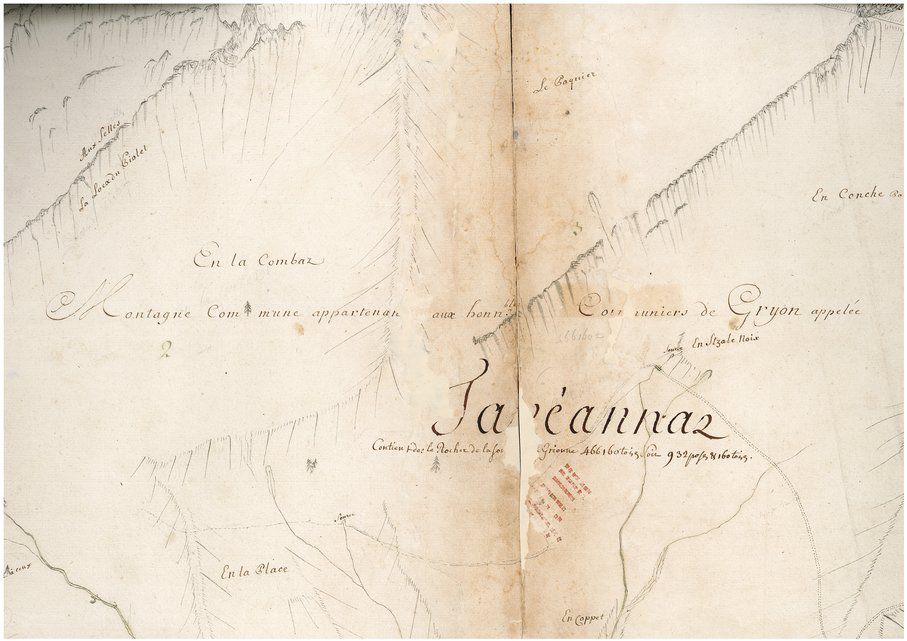 Le Paquier
Aux Selles
La Loex du Ciolet
En Conche
En la Combaz
Montagne Commune appartenan aux honn bles Communiers de Gryon appelée
2
3
Source En Stzale Noix
Ta éannaz
Contient dec la Rocher de la Grionne 466160 tois Soit 932 poses & 160 tois.
Source
En la Place
En Coppet